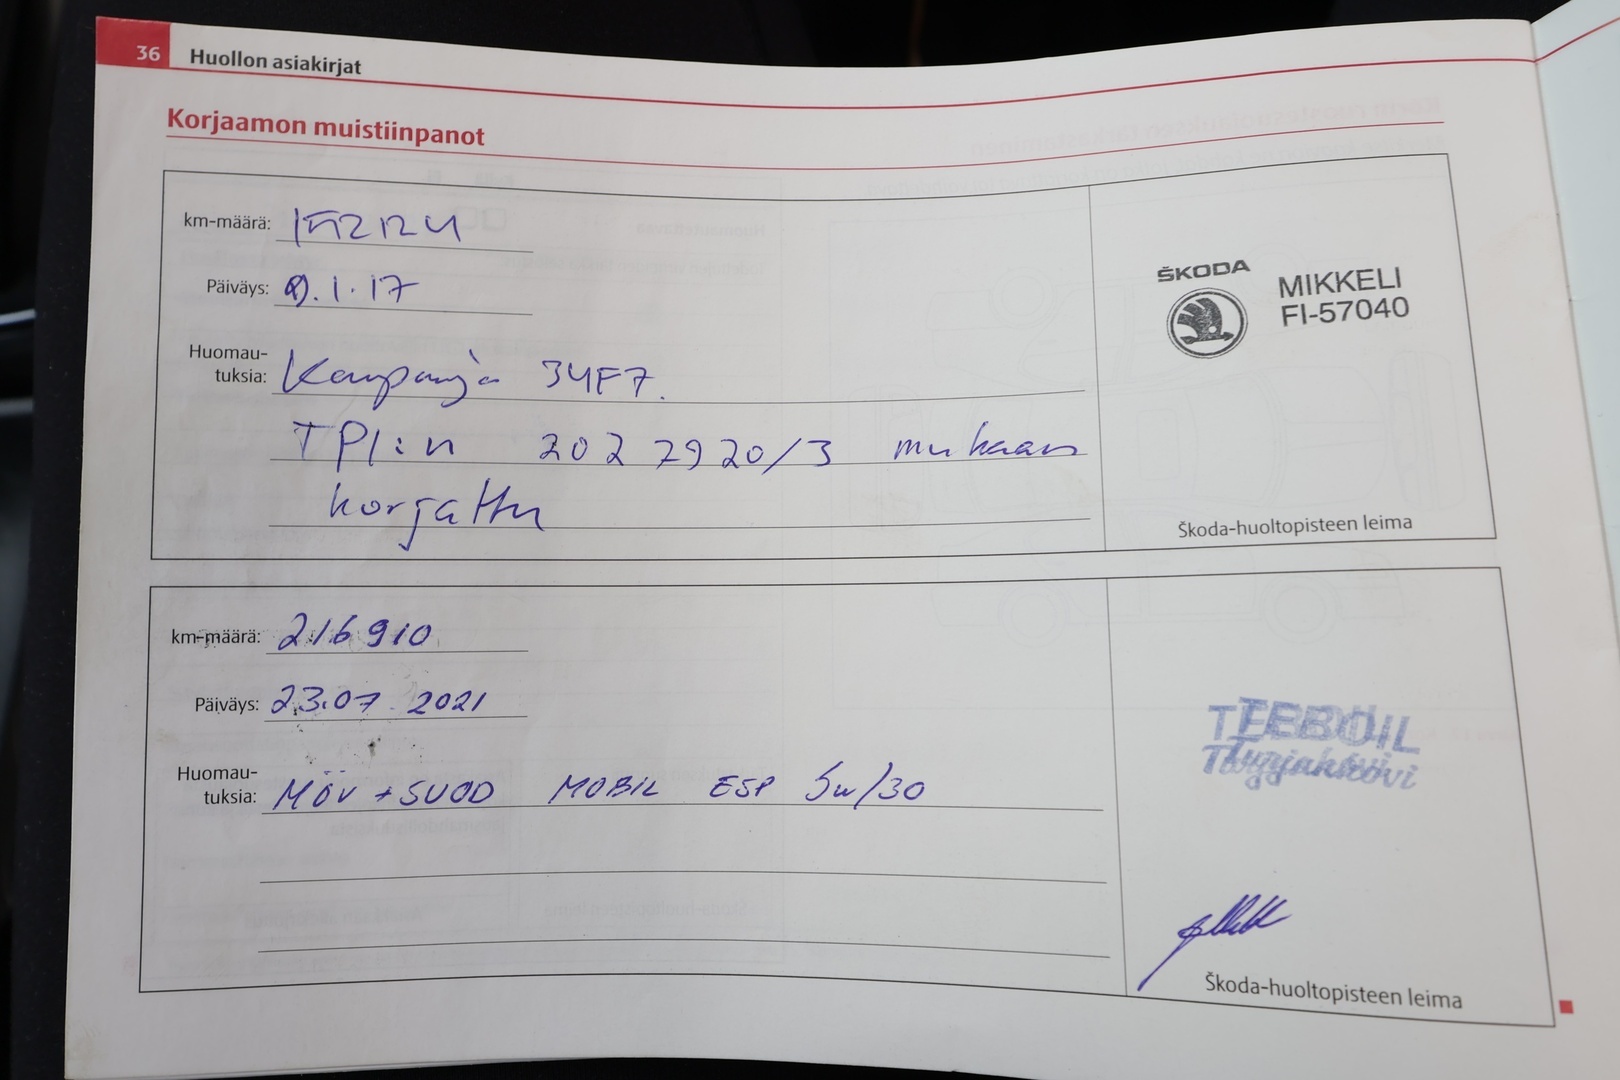 36 Huollon asiakirjat
Korjaamon muistiinpanot
km-määrä:
Päiväys: 9.1.17
Huomau-
tuksia: Kampanja 34F7.
TPI:n 2027920/3 mukaan
korjattu
ŠKODA
MIKKELI
FI-57040
Škoda-huoltopisteen leima
km-määrä: 216910
Päiväys: 23.07.2021
Huomau-
tuksia: MÖV + SUOD MOBIL ESP 5w/30
TEBOIL
Škoda-huoltopisteen leima